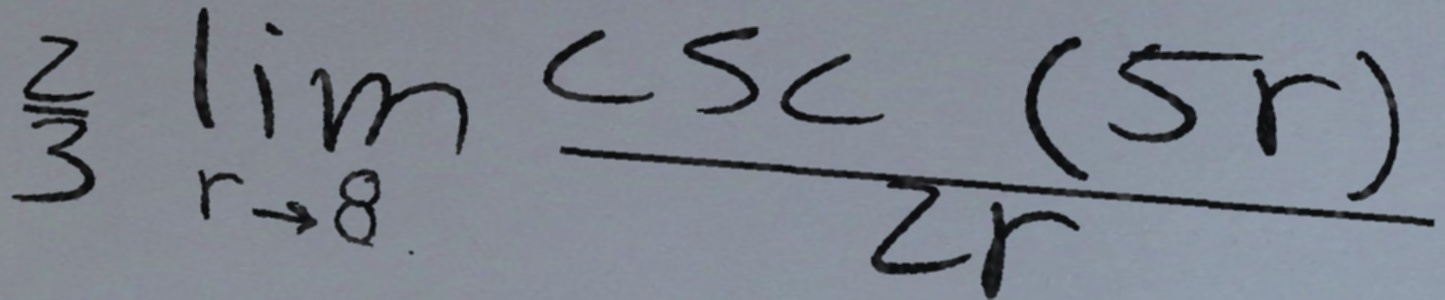 \frac{2}{3} \lim_{r \to 8} \frac{\csc (5r)}{2r}